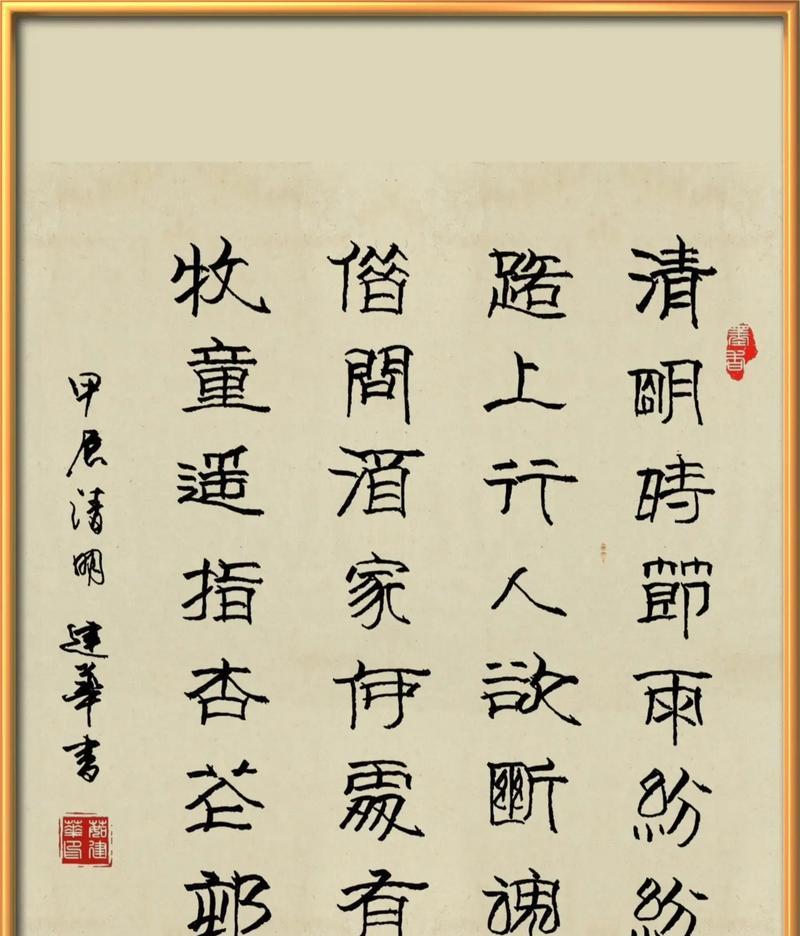 墨香
清明時節雨紛紛
路上行人欲斷魂
借問酒家何處有
牧童遙指杏花邨
甲辰清明 建華書
建華印